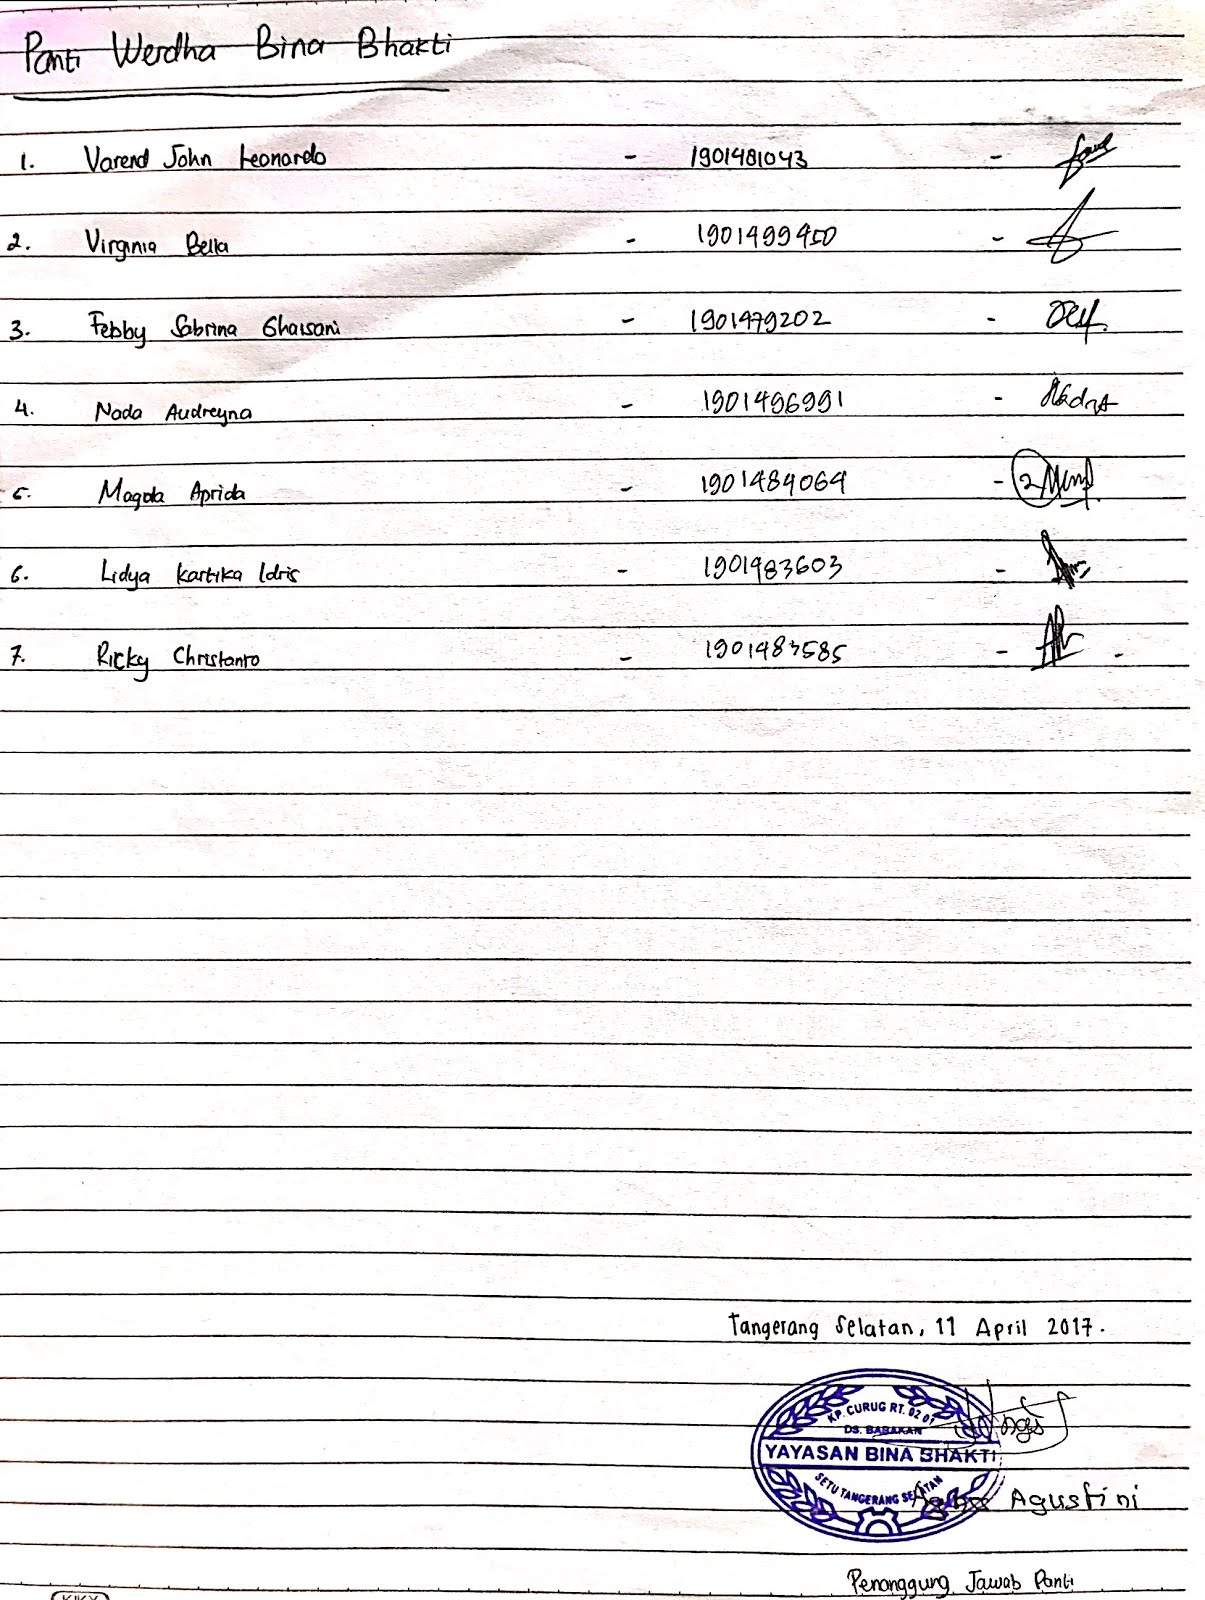 Panti Werdha Bina Bhakti
1. Varend John Leonardo - 1901481043 -
2. Virginia Bella - 1901499450 -
3. Febby Sabrina Ghaisani - 1901479202 -
4. Nada Audreyna - 1901496991 -
5. Magda Aprida - 1901484064 -
6. Lidya Kartika Idris - 1901483603 -
7. Ricky Christanto - 1901483585 - -
Tangerang Selatan, 11 April 2017.
KP. CURUG RT. 02 01
DS. BABAKAN
YAYASAN BINA BHAKTI
SETU TANGERANG SELATAN
Agustini
Penanggung Jawab Panti
KIKY